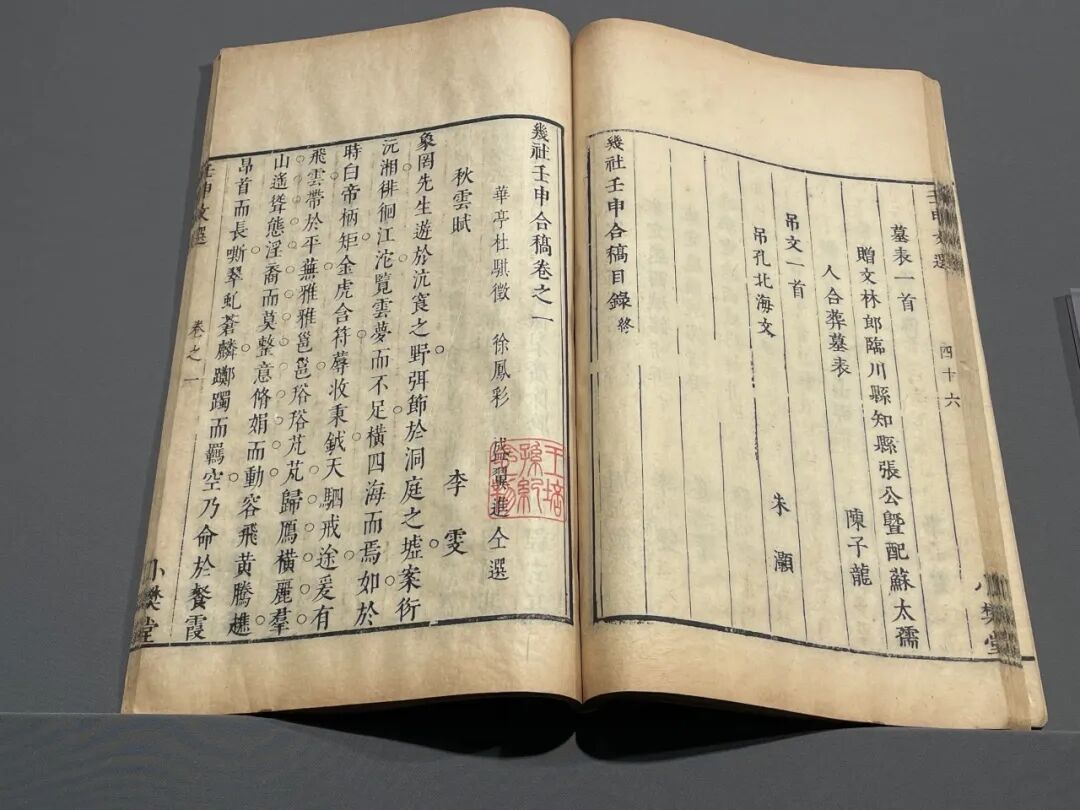 壬申文選 四十六 小樊堂
墓表一首
贈文林郎臨川縣知縣張公暨配蘇太孺
人合葬墓表 陳子龍
吊文一首
吊孔北海文 朱灝
幾社壬申合稿目錄終
幾社壬申合稿卷之一
華亭杜騏徵 徐鳳彩 盛翼進仝選
王培孫紀念物
秋雲賦 李雯
象罔先生遊於沆㝠之野弭節於洞庭之墟案衍
沅湘徘徊江沱覽雲夢而不足橫四海而焉如於
時白帝柄矩金虎含符蓐收秉鉞天駟戒途爰有
飛雲帶於平蕪雅雅邕邕芃芃歸鴈橫麗羣
山遙聳態淫裔而莫整意脩娟而動容飛黃騰趭
昂首而長嘶翠虬蒼麟躑躅而羈空乃命於餐霞
壬申文選 卷之一 小樊堂